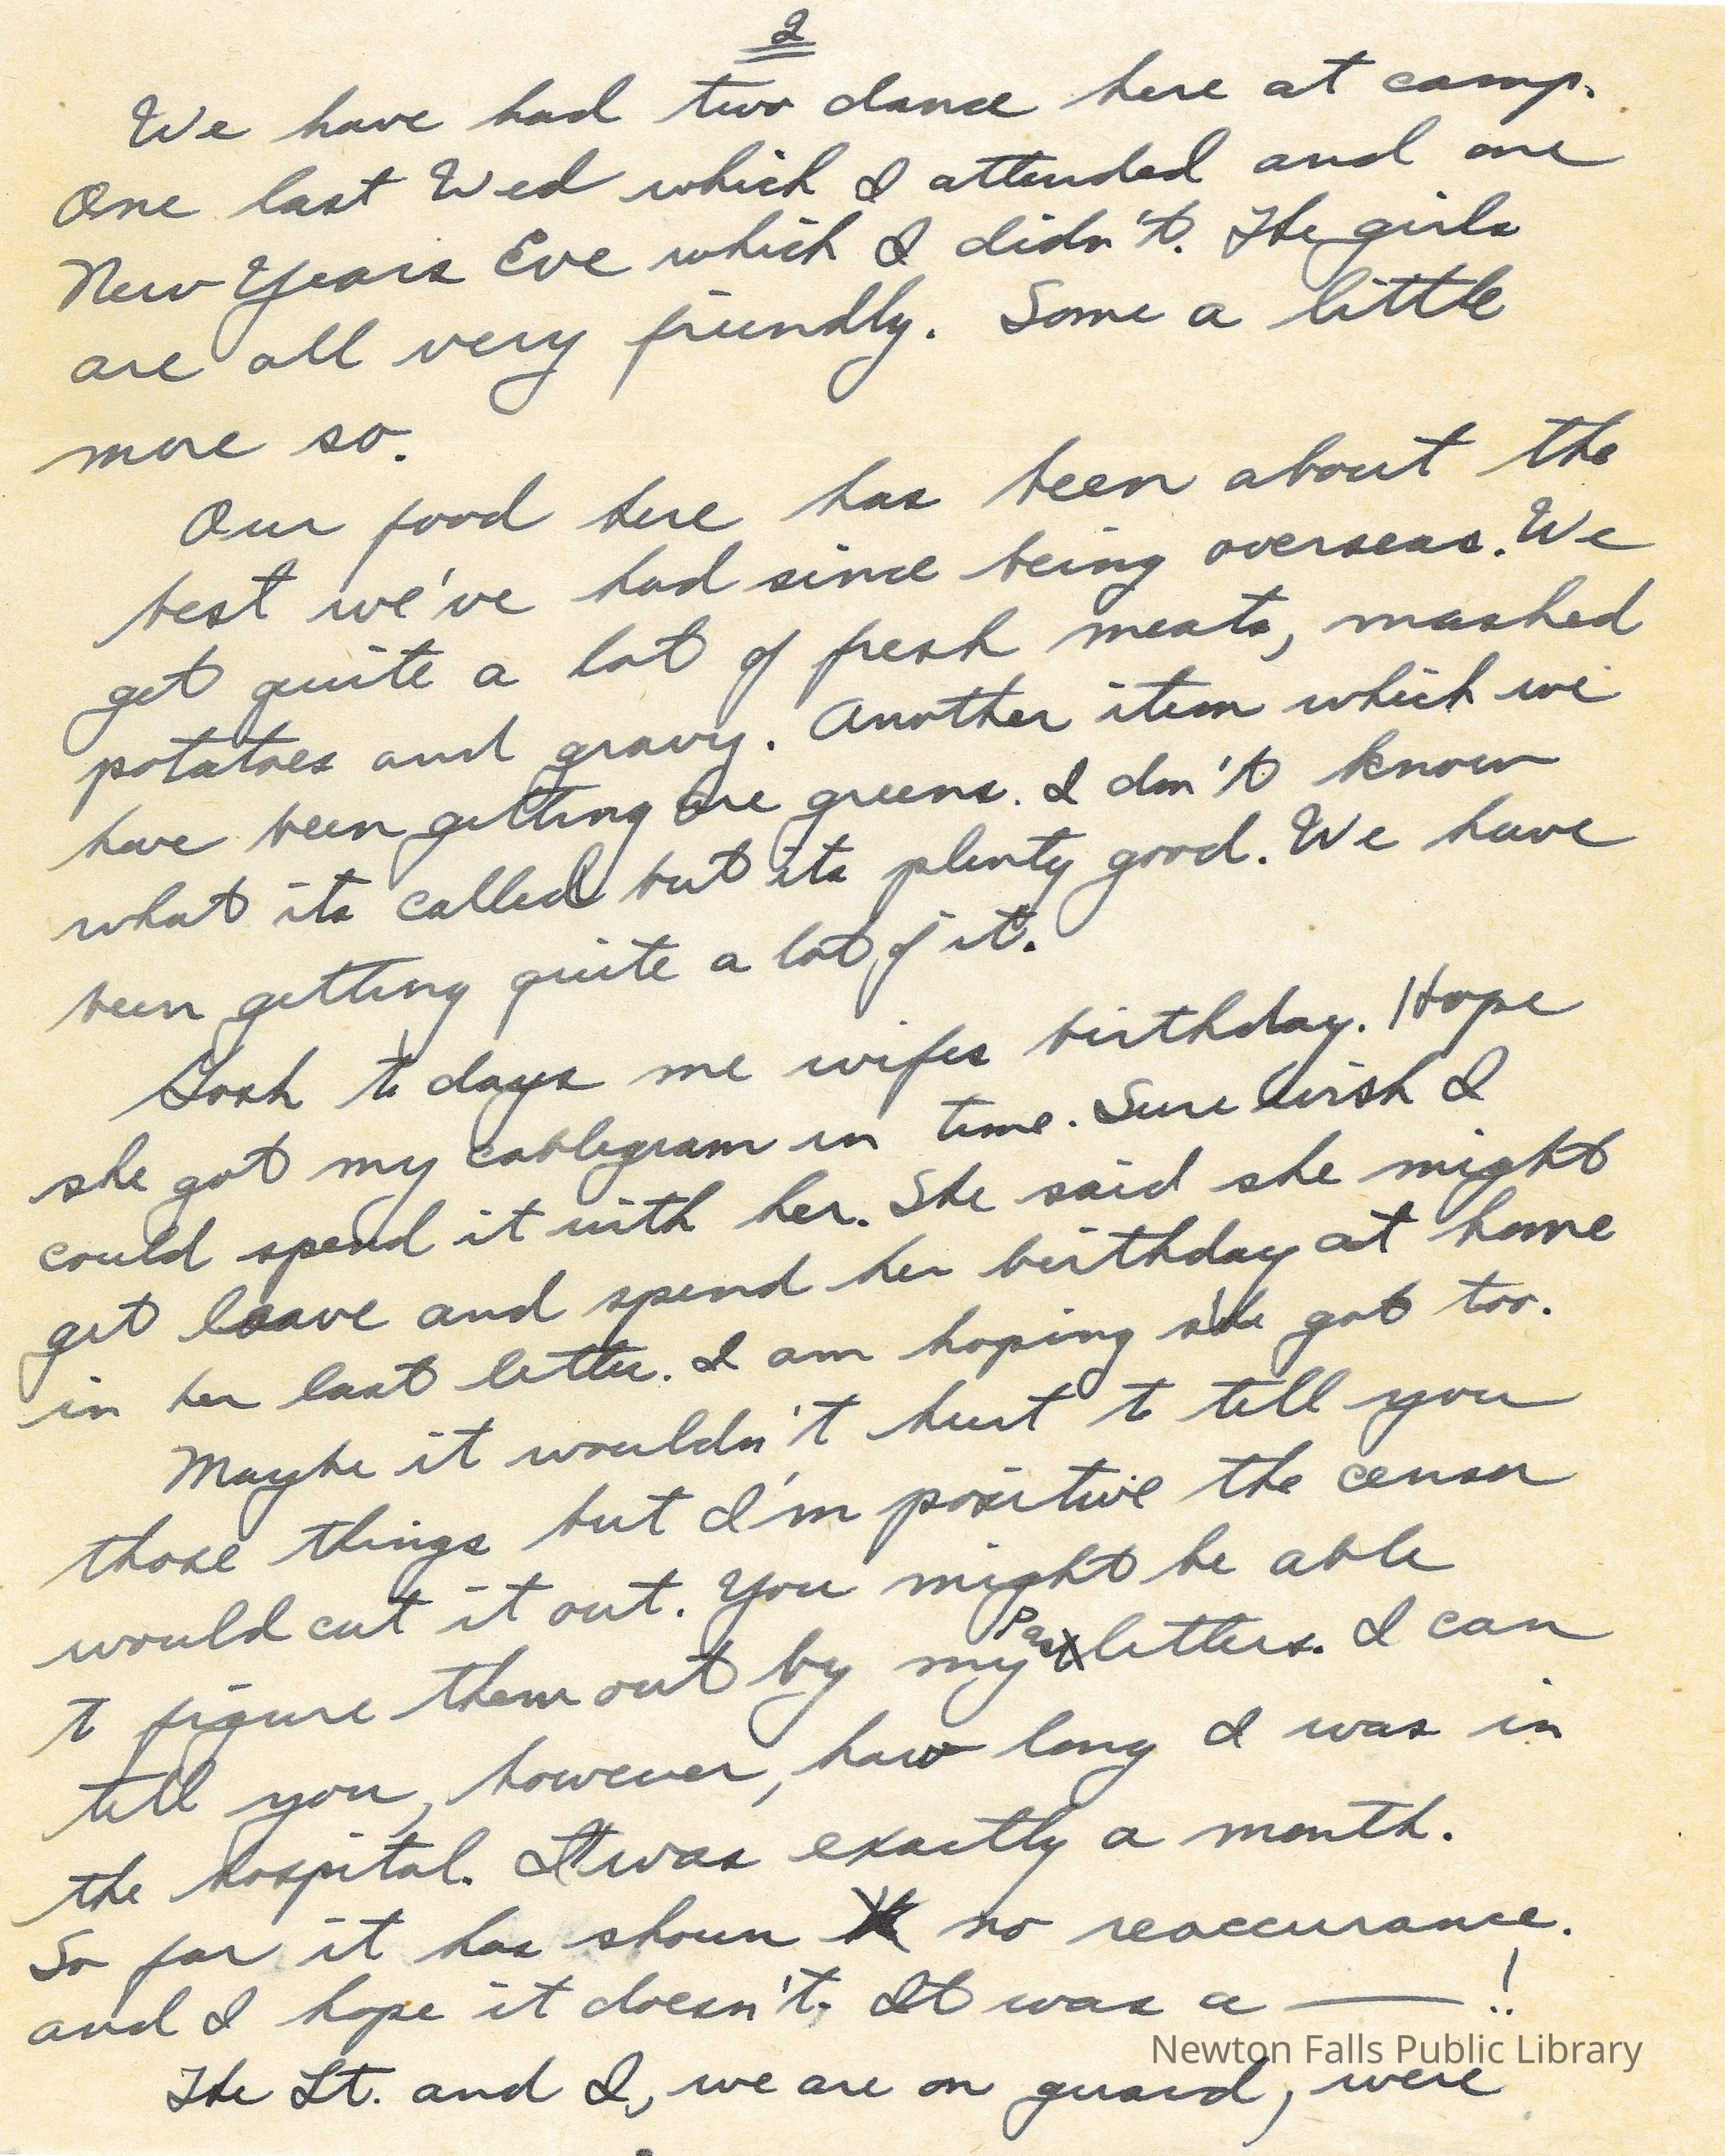 2
We have had two dance here at camp.
One last Wed which I attended and one
New Years Eve which I didn't. The girls
are all very friendly. Some a little
more so.
Our food here has been about the
best we've had since being overseas. We
get quite a lot of fresh meats, mashed
potatoes and gravy. Another item which we
have been getting are greens. I don't know
what its called but its plenty good. We have
been getting quite a lot of it.
Gosh to days me wifes birthday. Hope
she got my cablegram in time. Sure wish I
could spend it with her. She said she might
get leave and spend her birthday at home
in her last letter. I am hoping she got too.
Maybe it wouldn't hurt to tell you
those things but I'm positive the censor
would cut it out. You might be able
to figure them out by my letters. I can
tell you, however, how long I was in
the hospital. It was exactly a month.
So far it has shown no reoccurance.
and I hope it doesn't. It was a —— !!
Newton Falls Public Library
The Lt. and I, we are on guard, were